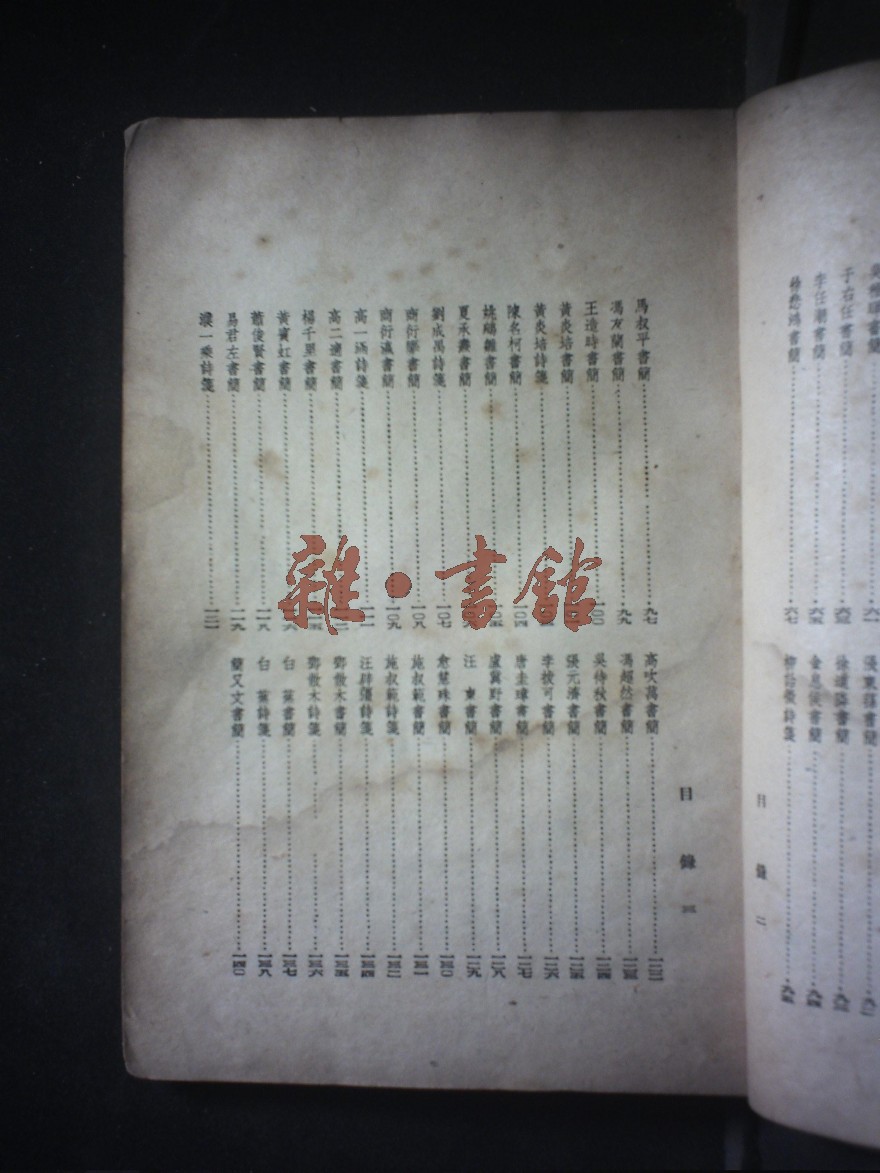 于右任書簡……六三
李任潮書簡……六五
徐悲鴻書簡……六七
目錄 二
目錄 三
馬叔平書簡……九七
馮友蘭書簡……九九
王造時書簡……一〇〇
黃炎培書簡
黃炎培詩箋
陳名柯書簡……一〇四
姚鵷雛書簡
夏承燾書簡
劉成禺詩箋……一〇七
商衍鎏書簡……一〇八
商衍瀛書簡……一〇九
高一涵詩箋……一一一
高二適書簡
楊千里書簡
黃賓虹書簡
蕭俊賢書簡……一一八
易君左書簡……一一九
濮一乘詩箋……一二一
高吹萬書簡……一二二
馮超然書簡……一二三
吳待秋書簡……一二四
張元濟書簡……一二五
李拔可書簡……一二六
唐圭璋書簡……一二七
盧冀野書簡……一二八
汪東書簡……一二九
俞慧殊書簡……一三〇
施叔範書簡……一三一
施叔範詩箋……一三二
汪辟疆詩箋……一三四
鄧散木書簡……一三五
鄧散木詩箋……一三六
白蕉書簡……一三七
白蕉詩箋……一三八
簡又文書簡……一四〇
雜·書館